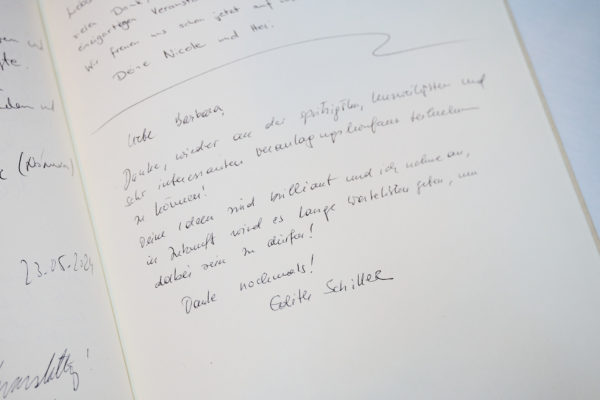 Liebe
vielen Dank,
einzigartigen Veranst
Wir freuen uns schon jetzt auf
Deine Nicole und
Liebe Barbara,
Danke, wieder an der spritzigsten, kurzweiligsten und
sehr interessanten Veranlagungskonferenz teilnehmen
zu können!
Deine Ideen sind brilliant und ich nehme an,
in Zukunft wird es lange Wartelisten geben, um
dabei sein zu dürfen!
Danke nochmals!
Edith Schiller
23.05.2024